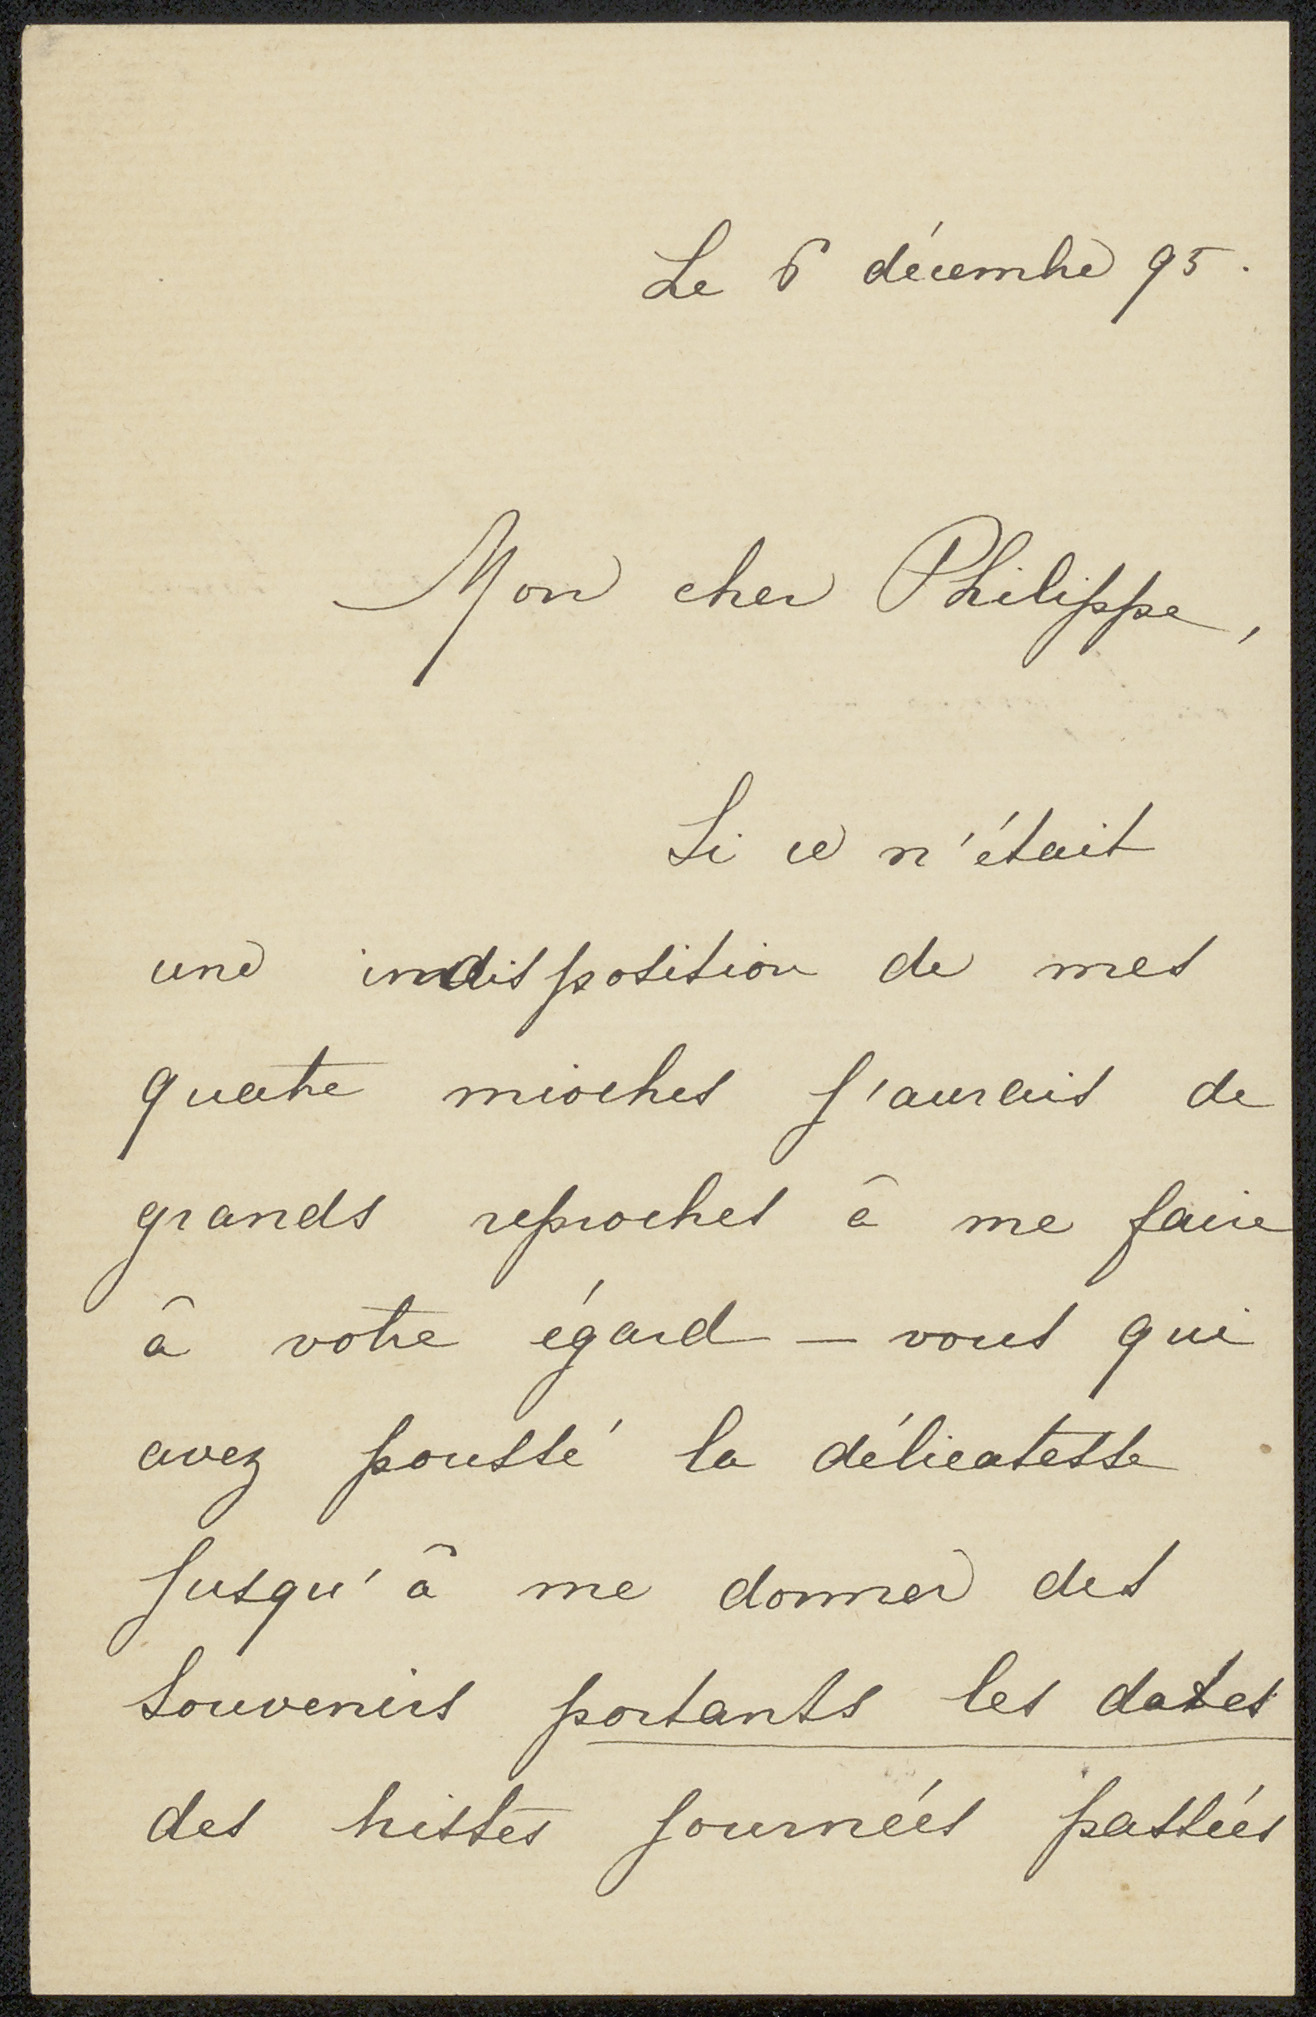 Le 6 décembre 95.
Mon cher Philippe,
Si ce n'était
une indisposition de mes
quatre mioches j'aurais de
grands reproches à me faire
à votre égard — vous qui
avez poussé la délicatesse
jusqu'à me donner des
souvenirs portants les dates
des tristes journées passées